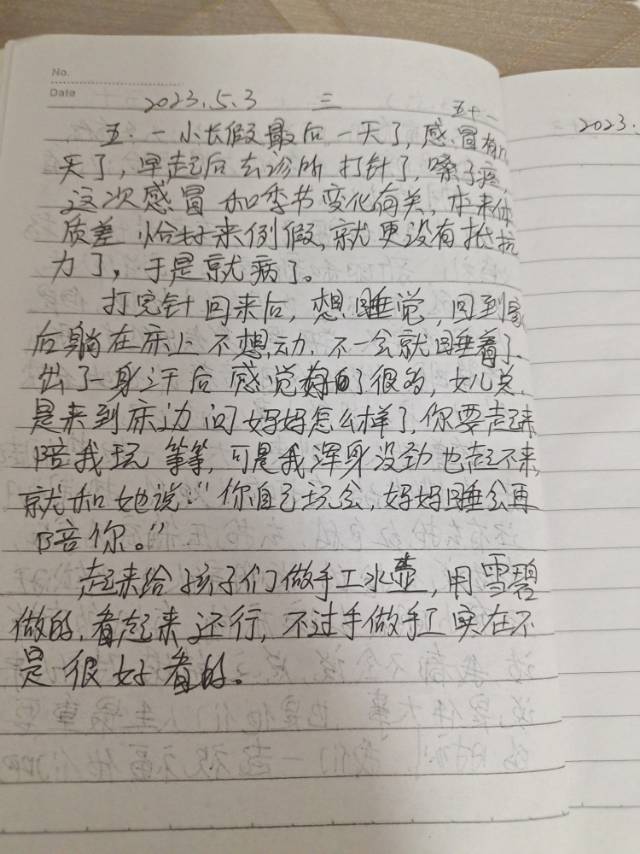 No.
Date
2023.5.3 三 五十一
五.一小长假最后一天了,感冒有几
天了,早起后去诊所打针了,嗓子疼,
这次感冒和季节变化有关,本来体
质差 恰好来例假,就更没有抵抗
力了,于是就病了。
打完针回来后,想睡觉,回到家
后躺在床上不想动.不一会就睡着了.
出了一身汗后感觉好的了很多,女儿总
是来到床边问妈妈怎么样了,你要起来
陪我玩 等等,可是我浑身没劲也起不来,
就和她说:“你自己玩会,妈妈睡会再
陪你。”
起来给孩子们做手工水壶,用雪碧
做的,看起来还行,不过手做手工实在不
是很好看的。
2023.